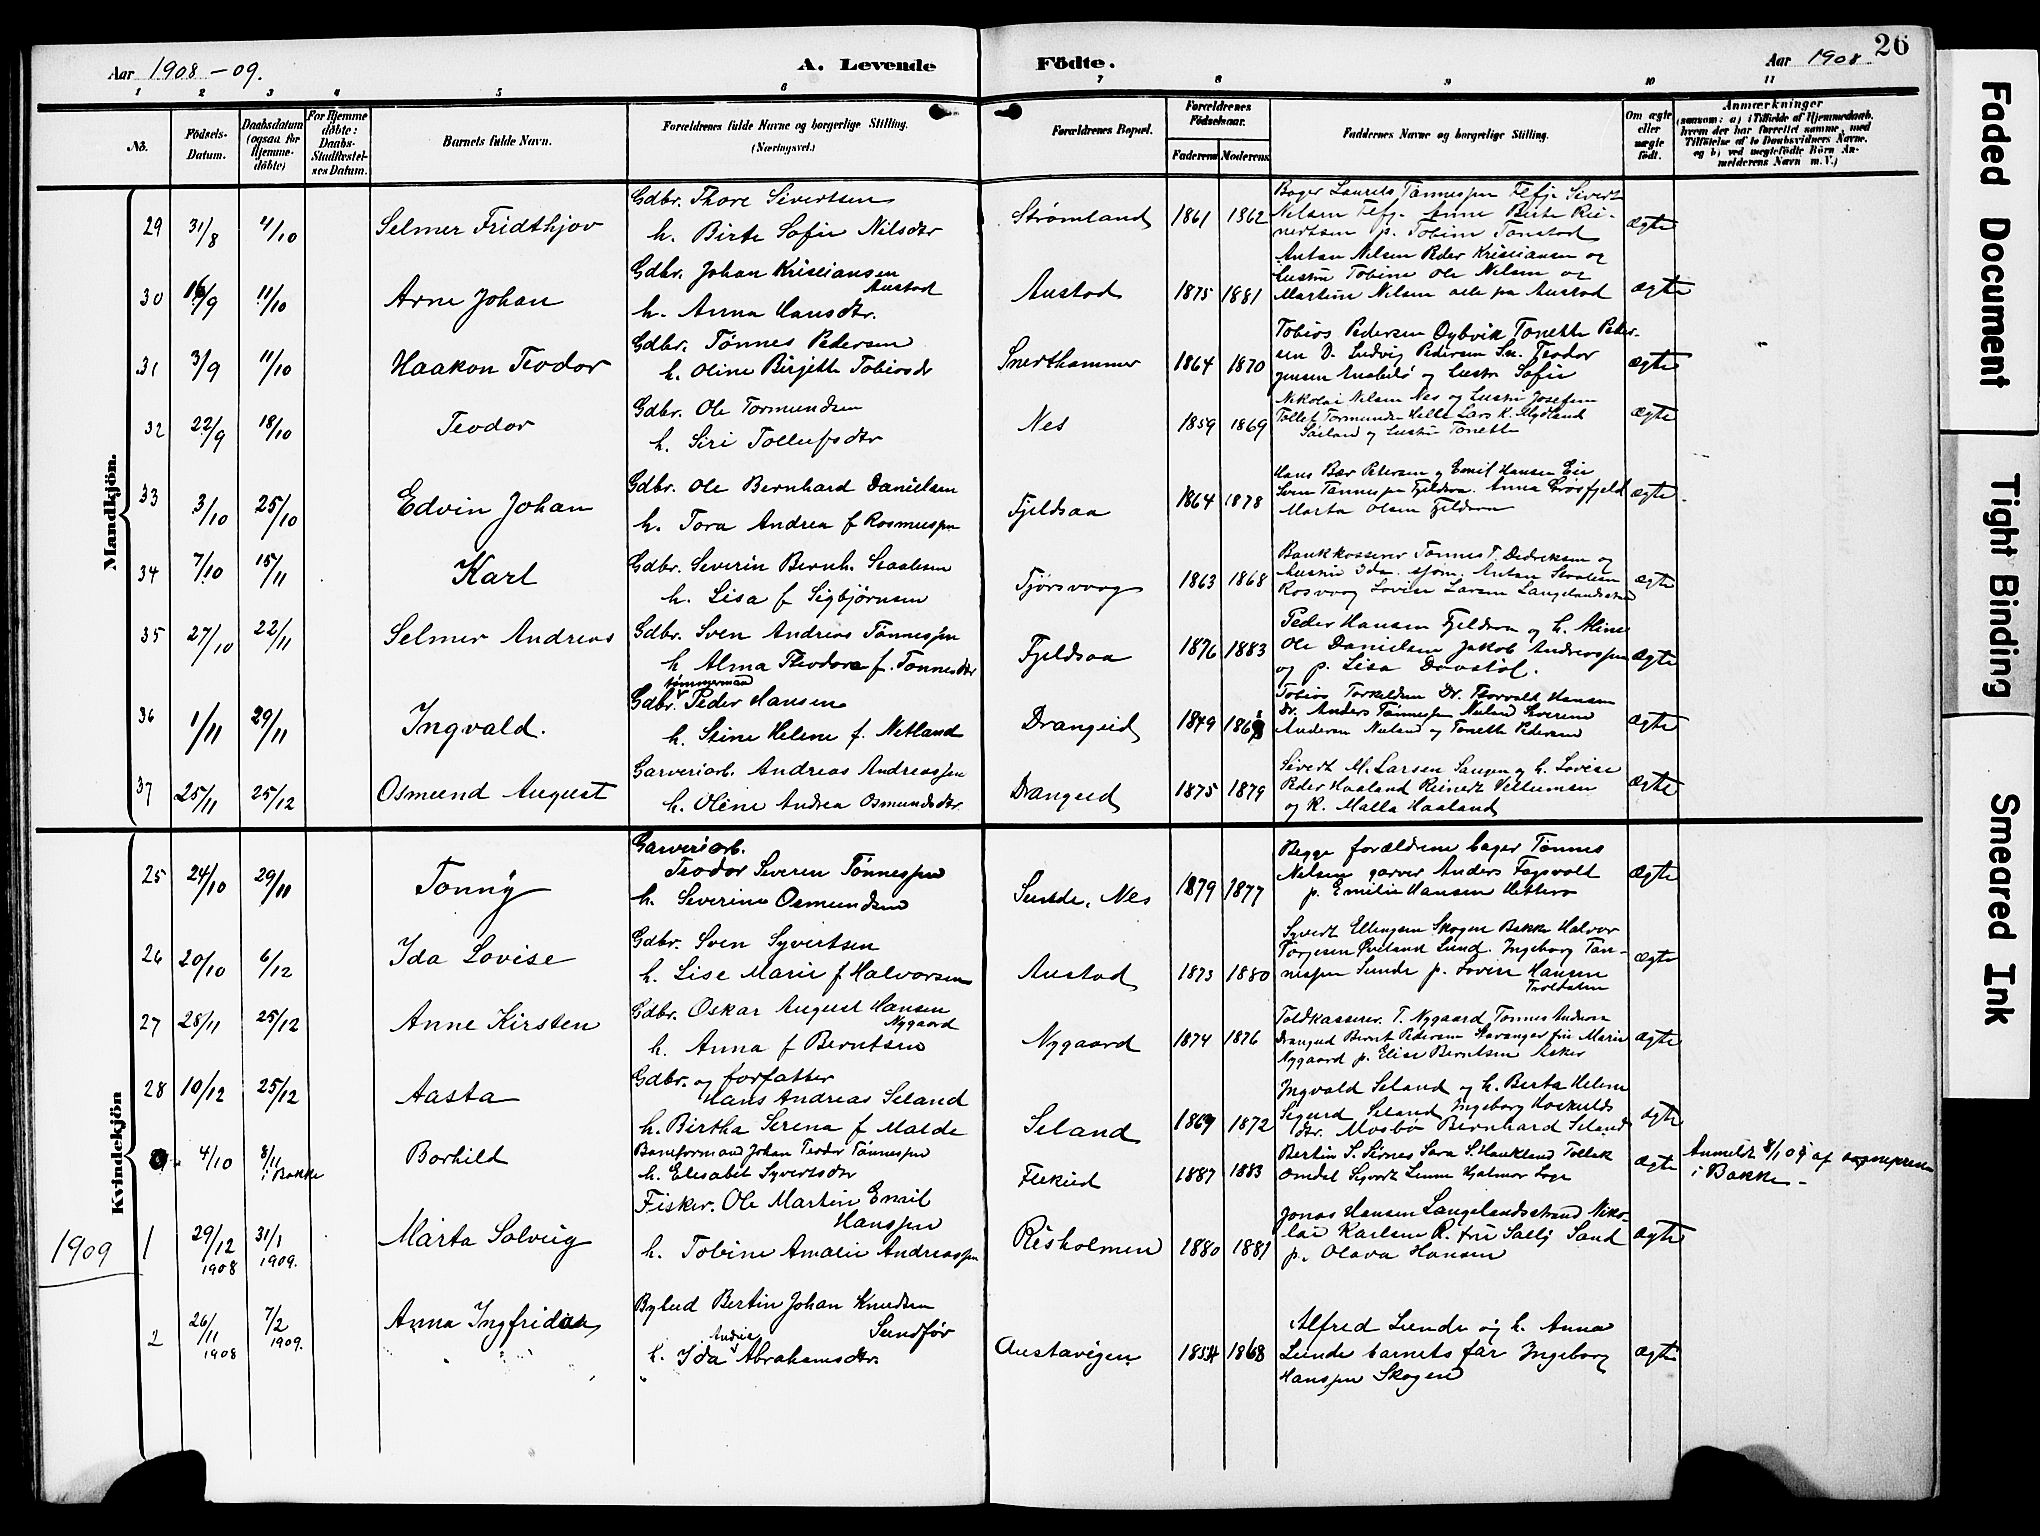 Aar 1908-09.
A. Levende Födte.
Aar 1908.
26
1 2 3 4 5 6 7 8 9 10 11
No.
Födsels-Datum.
Daabsdatum (ogsaa for Hjemme-döbte)
For Hjemme döbte: Daabs-Stadfæstel-ses Datum.
Barnets fulde Navn.
Forældrenes fulde Navne og borgerlige Stilling. (Næringsvei.)
Forældrenes Bopæl.
Forældrenes Födselsaar.
Faderens Moderens
Faddernes Navne og borgerlige Stilling.
Om ægte eller uægte födt.
Anmærkninger
(saasom: a) i Tilfælde af Hjemmedaab, hvem der har forrettet samme, med Tilföielse af to Daabsvidners Navne, og b) ved uægtefödte Börn An-melderens Navn m. V.)
Mandkjön.
29 31/8 4/10 Selmer Fridthjov
Gdbr. Thore Sivertsen
h. Birte Sofie Nilsdtr
Strømland 1861 1862
Nilsen Fefj. Anne Birte Rei-
nertsen p. Tobine Tonstad
ægte
30 16/9 11/10 Arne Johan
Gdbr. Johan Kristiansen
Austad
h. Anna Hansdtr.
Austad 1875 1881
Antan Nilsen Peder Kristiansen og
hustru Tobine Ole Nilsen og
Martine Nilsen alle paa Austad
ægte
31 3/9 11/10 Haakon Teodor
Gdbr. Tønnes Pedersen
h. Oline Birgitte Tobiasdr
Snerthammer 1864 1870
Tobias Pedersen Oybvik Tonette Peder-
sen D. Ludvig Pedersen Sn. Teodor
og hustru Sofie
ægte
32 22/9 18/10 Teodor
Gdbr. Ole Tormundsen
h. Siri Tollefsdtr
Nes 1859 1869
Nikolai Nilsen Nes og hustru Josefine
Tollef Tormunds. Helle Lars K. Glydland
og hustru Tonette
ægte
33 3/10 25/10 Edvin Johan
Gdbr. Ole Bernhard Danielsen
h. Tora Andrea f Rosmussen
Fjeldsaa 1864 1878
Hans Bær Petersen og Emil Hansen Eie
Sven Tønnessen Fjeldsaa. Anna Grøsfjeld
Marta Olsen Fjeldsaa
ægte
34 7/10 15/11 Karl
Gdbr. Severin Bernh. Staalesen
h. Lisa f Sigbjørnsen
Tjørsvaag 1863 1868
Bankkasserer Tønnes T. Dedreksen og
hustru Ida. sjøm. Antan Staalesen
Rosvaag Lovise Larsen Langelandsstrand
ægte
35 27/10 22/11 Selmer Andreas
Gdbr. Sven Andreas Tønnessen
h Alma Theodora f. Tønnesdtr
Fjeldsaa 1876 1883
Peder Hansen Fjeldsaa og h. Aline
Ole Danielsen Jakob Andreassen
og p. Lisa Davstøl.
ægte
36 1/11 29/11 Ingvald.
tømmermand
Gdbr. Peder Hansen
h. Stine Helene f. Netland
Drangeid 1849 186
Tobias Torkeldsen Dr. Thorvald Hansen
Dr. Anders Tønnessen Nuland
Andersen Nuland og Tonette Pedersen
ægte
37 25/11 25/12 Osmund August
Garveriarb. Andreas Andreassen
h. Oline Andrea Osmundsdtr.
Drangeid 1875 1879
Sivert M. Larsen og h. Lovise
Peder Haaland Reinert Vellumsen
og K. Malla Haaland
ægte
Kvindekjön
25 24/10 29/11 Tonny
Garveriarb.
Teodor Severin Tønnessen
h. Severine Osmundsen
Sunde, Nes 1879 1877
Begge forældrene bager Tønnes
Nilsen garver Anders Fagsvolt
p. Emilie Hansen
ægte
26 20/10 6/12 Ida Lovise
Gdbr. Sven Syvertsen
h. Lise Marie f Halvorsen
Austad 1873 1880
Syvert Ellingsen Skogen Bakke Halvor
Torjesen Øveland Lund. Ingeborg Tøn-
nessen Sunde p. Lovise Hansen
ægte
27 28/11 25/12 Anne Kirsten
Gdbr. Oskar August Hansen
Nygaard
h. Anna f Berntsen
Nygaard 1874 1876
Toldkasserer T. Nygaard Tønnes Andersen
Drangeid Bernt Pedersen Stavanger fru Marie
Nygaard p. Elise Berntsen Asker
ægte
28 10/12 25/12 Aasta
Gdbr. og forfatter
Hans Andreas Seland
h. Birtha Serena f Malde
Seland 1869 1872
Ingvald Seland og h. Berta Helene
Sigurd Seland Ingeborg Hoskulds
dtr. Mosbø Bernhard Seland
ægte
4/10 8/11 i Bakke Borhild
Baneformand Johan Teodor Tønnessen
h. Elisabet Syvertsdtr
Flekeid 1887 1883
Bertin S. Sirnes Sara S. Haukland Tollak
Omdal Syvert Lunne Hjalmar Loge
ægte
Anmeldt 8/1 09 af sognepresten
i Bakke -
1909
1 29/12 1908 31/1 1909. Marta Solveig
Fisker. Ole Martin Emil
Hanssen
h. Tobine Amalie Andreassen
Risholmen 1880 1881
Jonas Hansen Langelandsstrand Niko-
lai Karlsen R. fru Sally Sand
p. Olava Hansen
ægte
2 26/11 1908 7/2 1909. Anna Ingfrida
Bylud Bertin Johan Knudsen
Sundfør
h. Ida Andrea Abrahamsdtr.
Austavigen 1854 1868
Alfred Lunde og h. Anna
Lunde barnets far Ingeborg
Hanssen Skogen
ægte
Faded Document
Tight Binding
Smeared Ink